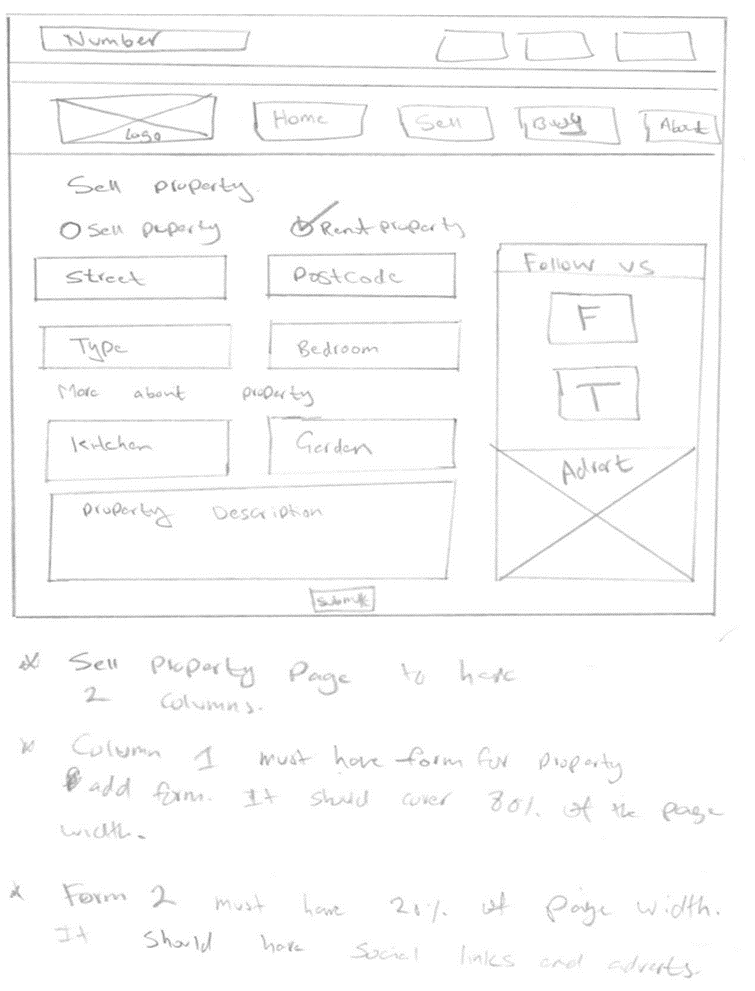 Number
Logo
Home
Sell
Buy
About
Sell property.
Sell property
Rent property
Street
Postcode
Follow us
F
Type
Bedroom
T
More about property
Kitchen
Garden
Advert
Property Description
Submit
Sell Property Page to have
2 Columns.
Column 1 must have form for property
add form. It should cover 80% of the page
width.
Form 2 must have 20% of page width.
It should have social links and adverts.